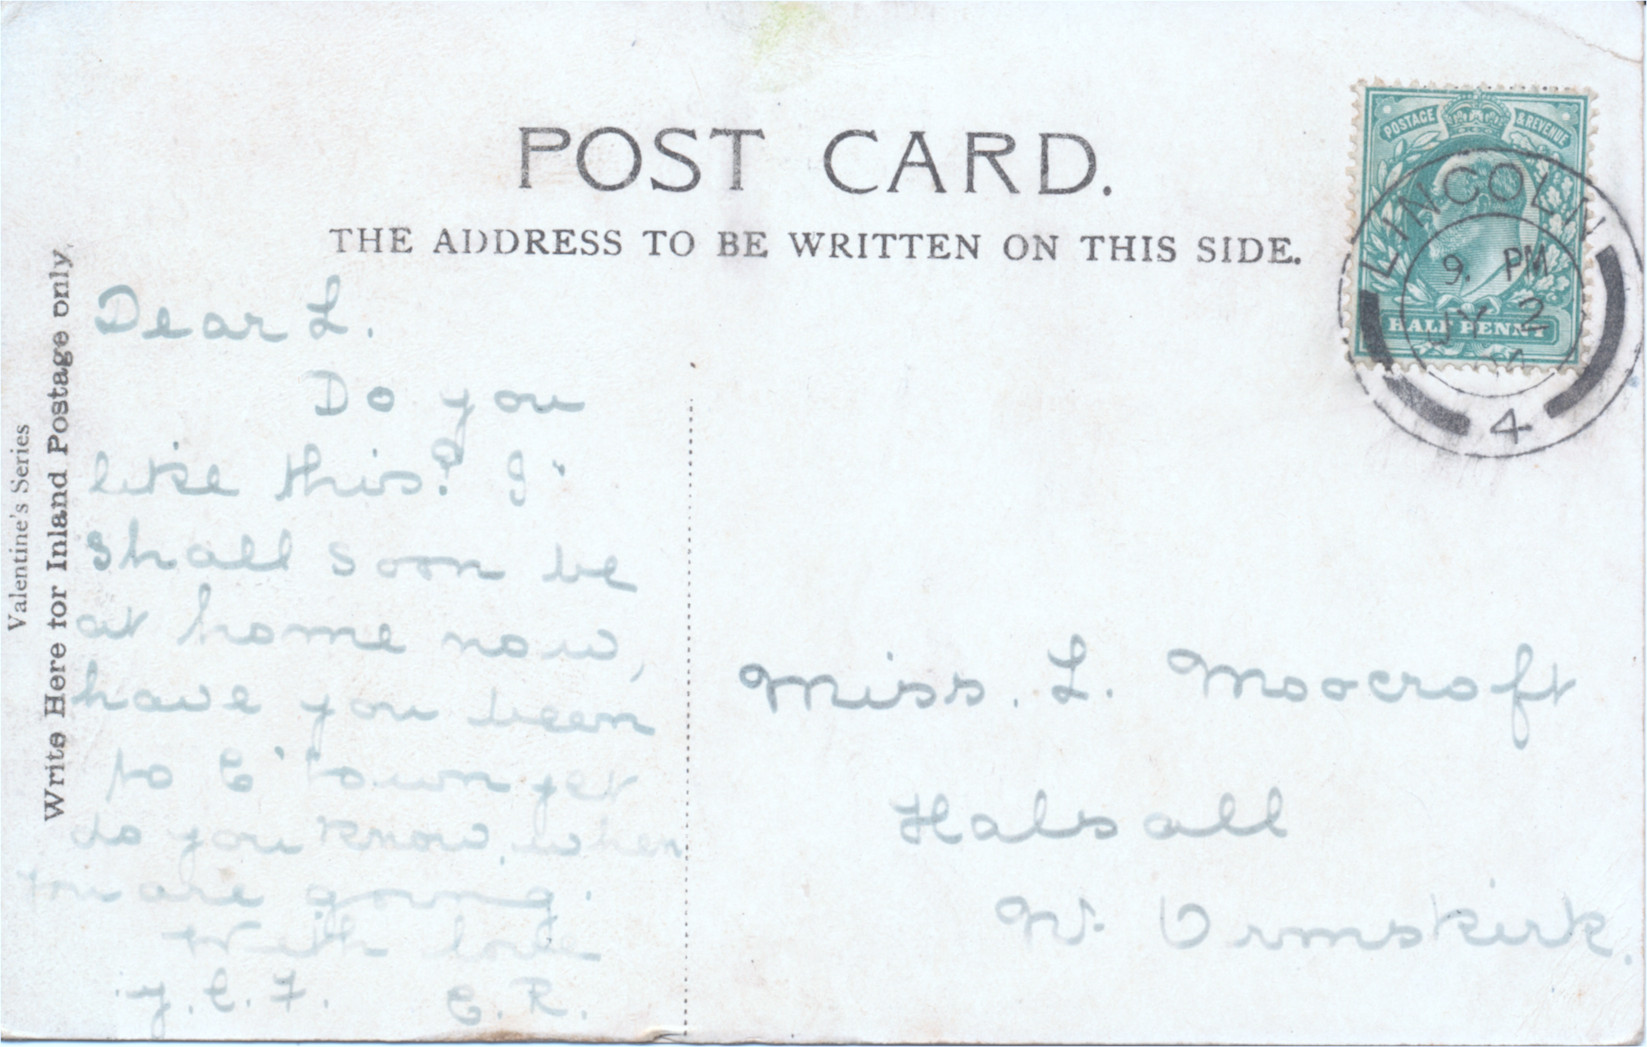 POST CARD.
THE ADDRESS TO BE WRITTEN ON THIS SIDE.
Valentine's Series
Write Here for Inland Postage only.
POSTAGE & REVENUE
HALF PENNY
LINCOLN
9. PM
JY 2
4
Dear L.
Do you
like this? I
shall soon be
at home now,
have you been
to C'town yet
do you know when
you are going.
With love
Y.C.F. C.R.
Miss. L. Moocroft
Halsall
Nr. Ormskirk.